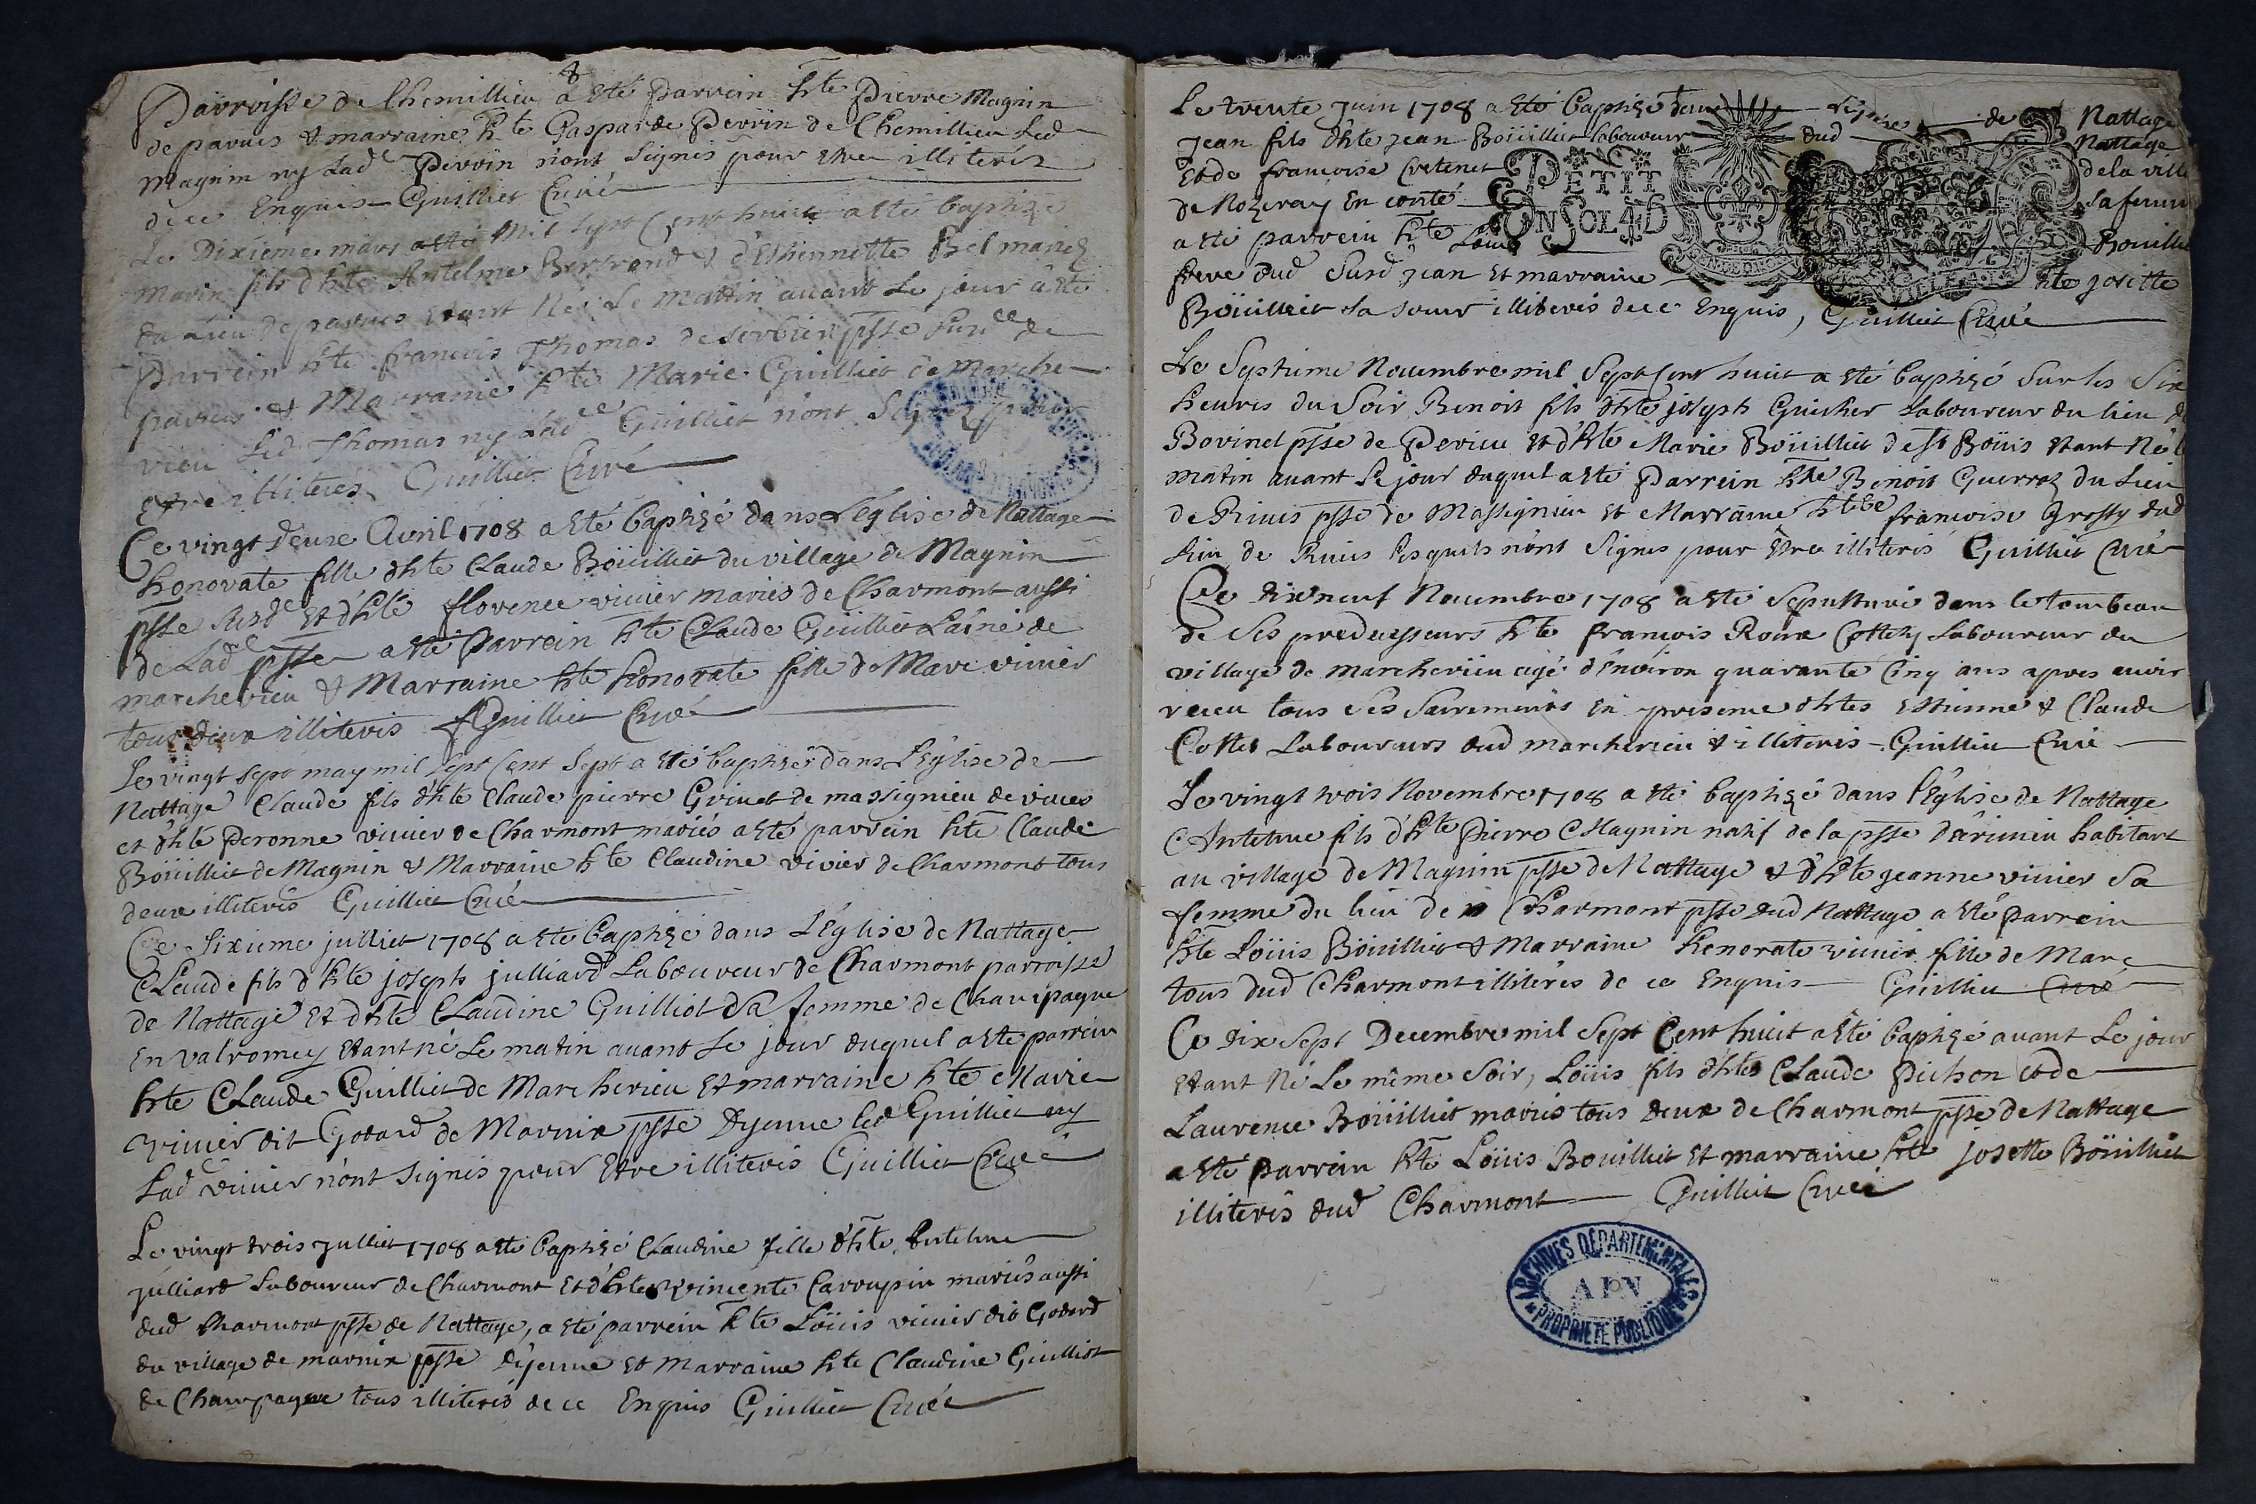 8
Parroisse de Chemillieu a esté Parrein hte Pierre Magnin
de parves & marraine hte Gasparde Perrin de Chemillieu led
Magnin ny lad Perrin n'ont signés pour etre illiterés
de ce Enquis Guilliet Curé
Le Dixieme mars mil sept cent huict a esté baptizé
Marin fils d'hte Antelme Bertrand & d'Estiennette Bel mariez
du Lieu de parves etant Né Le Mattin avant Le jour a esté
Parrein hte francois Thomas de pss susd de
parves & Marraine hte Marie Guilliet de Marche
rieu led Thomas ny lad Guilliet n'ont signez pour
etre illiterés Guilliet Curé
Ce vingt deuxe Avril 1708 a esté baptizé dans L'église de Nattage
honorate fille d'hte Claude Boüilliet du village de Magnin
psse susd et d'hte florence vivier mariés de Charmont aussi
de Lad psse a esté Parrein hte Claude Guilliet L'ainé de
marcherieu & Marraine hte honorate fille de Marc vivier
tous deux illiterés Guilliet Curé
Le vingt sept may mil sept cent sept a esté baptizé dans L'église de
Nattage Claude fils d'hte Claude pierre Grinet de massignieu de rives
et d'hte Peronne vivier de Charmont mariés a esté parrein hte Claude
Boüilliet de Magnin & Marraine hte Claudine vivier de Charmont tous
deux illiterés Guilliet Curé
Ce sixieme julliet 1708 a esté baptizé dans L'église de Nattage
Claude fils d'hte joseph julliard Laboureur de Charmont parroisse
de Nattage et d'hte Claudine Guilliot sa femme de Champagne
en Valromey etant né Le matin avant Le jour duquel a esté parrein
hte Claude Guilliet de Marcherieu et marraine hte Marie
vivier dit Godard de Marnix psse Dyenne led Guilliet ny
Lad vivier n'ont signés pour Etre illiterés Guilliet Curé
Le vingt trois julliet 1708 a esté baptizé Claudine fille d'hte Antelme
julliard Laboureur de Charmont et d'hte vincente Carrupin mariés aussi
dud Charmont psse de Nattage, a esté parrein hte Loüis vivier dit Godard
du village de marnix psse dyenne et Marraine hte Claudine Guilliot
de Champagne tous illiterés de ce Enquis Guilliet Curé
Le trente Juin 1708 a esté baptizé dans L'eglise de Nattage
Jean fils d'hte Jean Boüilliet laboureur dud Nattage
Et de francoise Cretenet de la ville
de Nozeray En conté sa femme
a esté parrein hte Louis Bouillie
frere dud susd Jean et marraine hte josette
Boüilliet sa soeur illiterés de ce Enquis, Guilliet Curé
PETIT
EN SOL 4 D
Le Septieme Novembre mil sept cent huict a esté baptizé sur les six
heures du soir Benoit fils d'hte joseph Guicher Laboureur du lieu d
Bovinel psse de Perieu et d'hte Marie Boüilliet de st Boüis etant Né le
matin avant Le jour duquel a esté Parrein hte Benoit Guerraz du Lieu
de Rives psse de Massignieu et Marraine hte francoise Grossy dud
Lieu de Rives lesquels n'ont signés pour Etre illiterés Guilliet Curé
Ce dixneuf Novembre 1708 a esté sepulturé dans le tombeau
de ses predecesseurs hte francois Roux Collet Laboureur du
village de marcherieu agé d'environ quarante cinq ans apres avoir
receu tous ses sacrements En presence d'htes Estienne & Claude
Collet Laboureurs dud marcherieu & illiterés Guilliet Curé
Le vingt trois Novembre 1708 a esté baptizé dans l'Église de Nattage
Antelme fils d'hte Pierre Magnin natif de la psse d'arimieu habitant
au village de Magnin psse de Nattage & d'hte jeanne vivier sa
femme du lieu de Charmont psse dud Nattage a esté parrein
hte Loüis Boüilliet & Marraine honorate vivier fille de Marc
tous dud Charmont illiterés de ce Enquis Guilliet Curé
Ce dix sept Decembre mil sept cent huict a esté baptizé avant Le jour
etant Né Le même soir, Loüis fils d'htes Claude Pichon et de
Laurence Boüilliet mariés tous deux de Charmont psse de Nattage
a esté parrein hte Loüis Boüilliet et marraine hte josette Boüilliet
illiterés dud Charmont Guilliet Curé
ARCHIVES DÉPARTEMENTALES
AIN
PROPRIÉTÉ PUBLIQUE